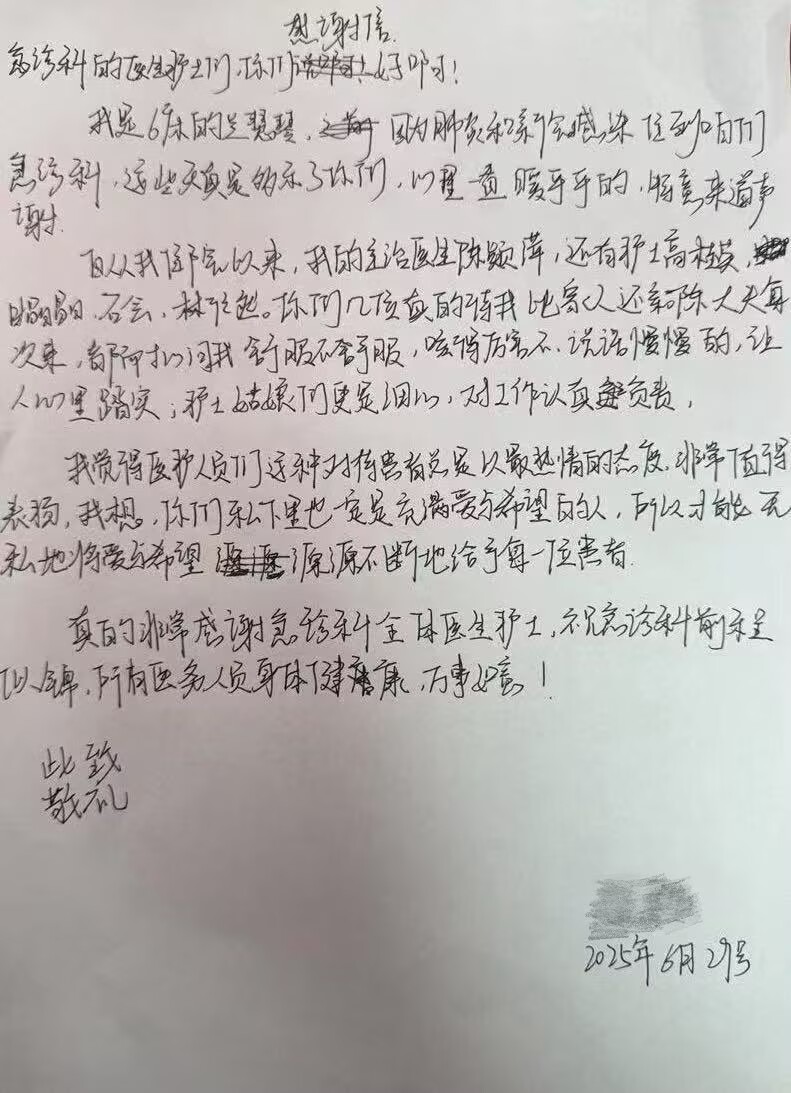 感谢信
急诊科的医生护士们，你们好啊！
我是6床的兰琴，因为肺炎和新冠感染住到咱们
急诊科，这些天真是多亏了你们，心里一直暖乎乎的，特意来道声
谢。
自从我住院以来，我的主治医生陈颖萍，还有护士高
石会，你们几位真的待我比家人还亲，陈大夫每
次来，都问我舒服不舒服，咳得厉害不，说话慢慢的，让
人心里踏实；护士姑娘们更是细心，对工作认真负责，
我觉得医护人员们这种对待患者总是以最热情的态度，非常值得
表扬，我想，你们私下里也一定是充满爱与希望的人，所以才能无
私地将爱与希望源源不断地给予每一位患者。
真的非常感谢急诊科全体医生护士，祝急诊科前程
似锦，所有医务人员身体健康，万事如意！
此致
敬礼
2025年6月29号